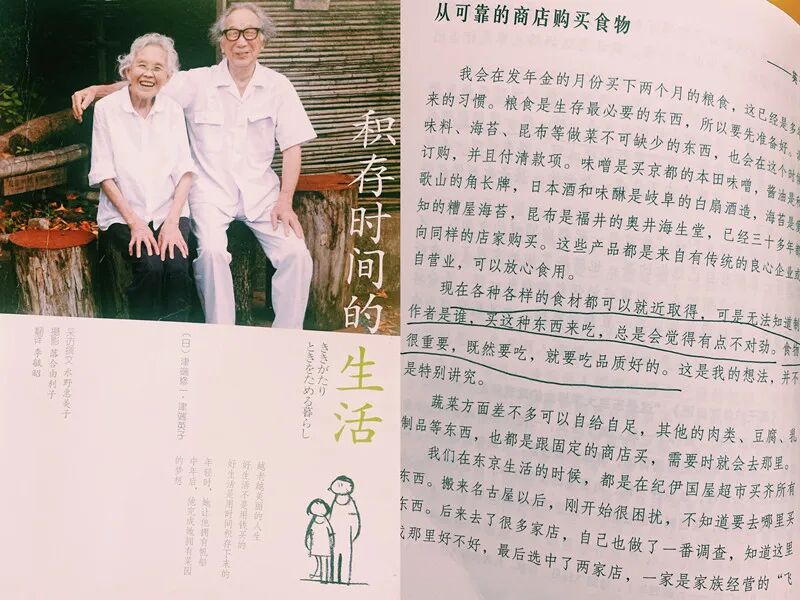 积存时间的
生活
ききがたり
ときをためる暮らし
(日)津端修一·津端英子
采访撰文 水野惠美子
摄影 落合由利子
翻译 李毓昭
越老越美丽的人生
好生活不是用钱买的
好生活是用时间积存下来的
年轻时,她让他拥有帆船
中年后,他完成她拥有菜园
的梦想
从可靠的商店购买食物
我会在发年金的月份买下两个月的粮食,这已经是多
来的习惯。粮食是生存最必要的东西,所以要先准备好。
味料、海苔、昆布等做菜不可缺少的东西,也会在这个时
订购,并且付清款项。味噌是买京都的本田味噌,酱油是
歌山的角长牌,日本酒和味醂是岐阜的白扇酒造,海苔是
知的糟屋海苔,昆布是福井的奥井海生堂,已经三十多年
向同样的店家购买。这些产品都是来自有传统的良心企业或
自营业,可以放心食用。
现在各种各样的食材都可以就近取得,可是无法知道制
作者是谁,买这种东西来吃,总是会觉得有点不对劲。食物
很重要,既然要吃,就要吃品质好的。这是我的想法,并不
是特别讲究。
蔬菜方面差不多可以自给自足,其他的肉类、豆腐、乳
制品等东西,也都是跟固定的商店买,需要时就会去那里。
我们在东京生活的时候,都是在纪伊国屋超市买齐所有
东西。搬来名古屋以后,刚开始很困扰,不知道要去哪里买
东西。后来去了很多家店,自己也做了一番调查,知道这里
或那里好不好,最后选中了两家店,一家是家族经营的“飞